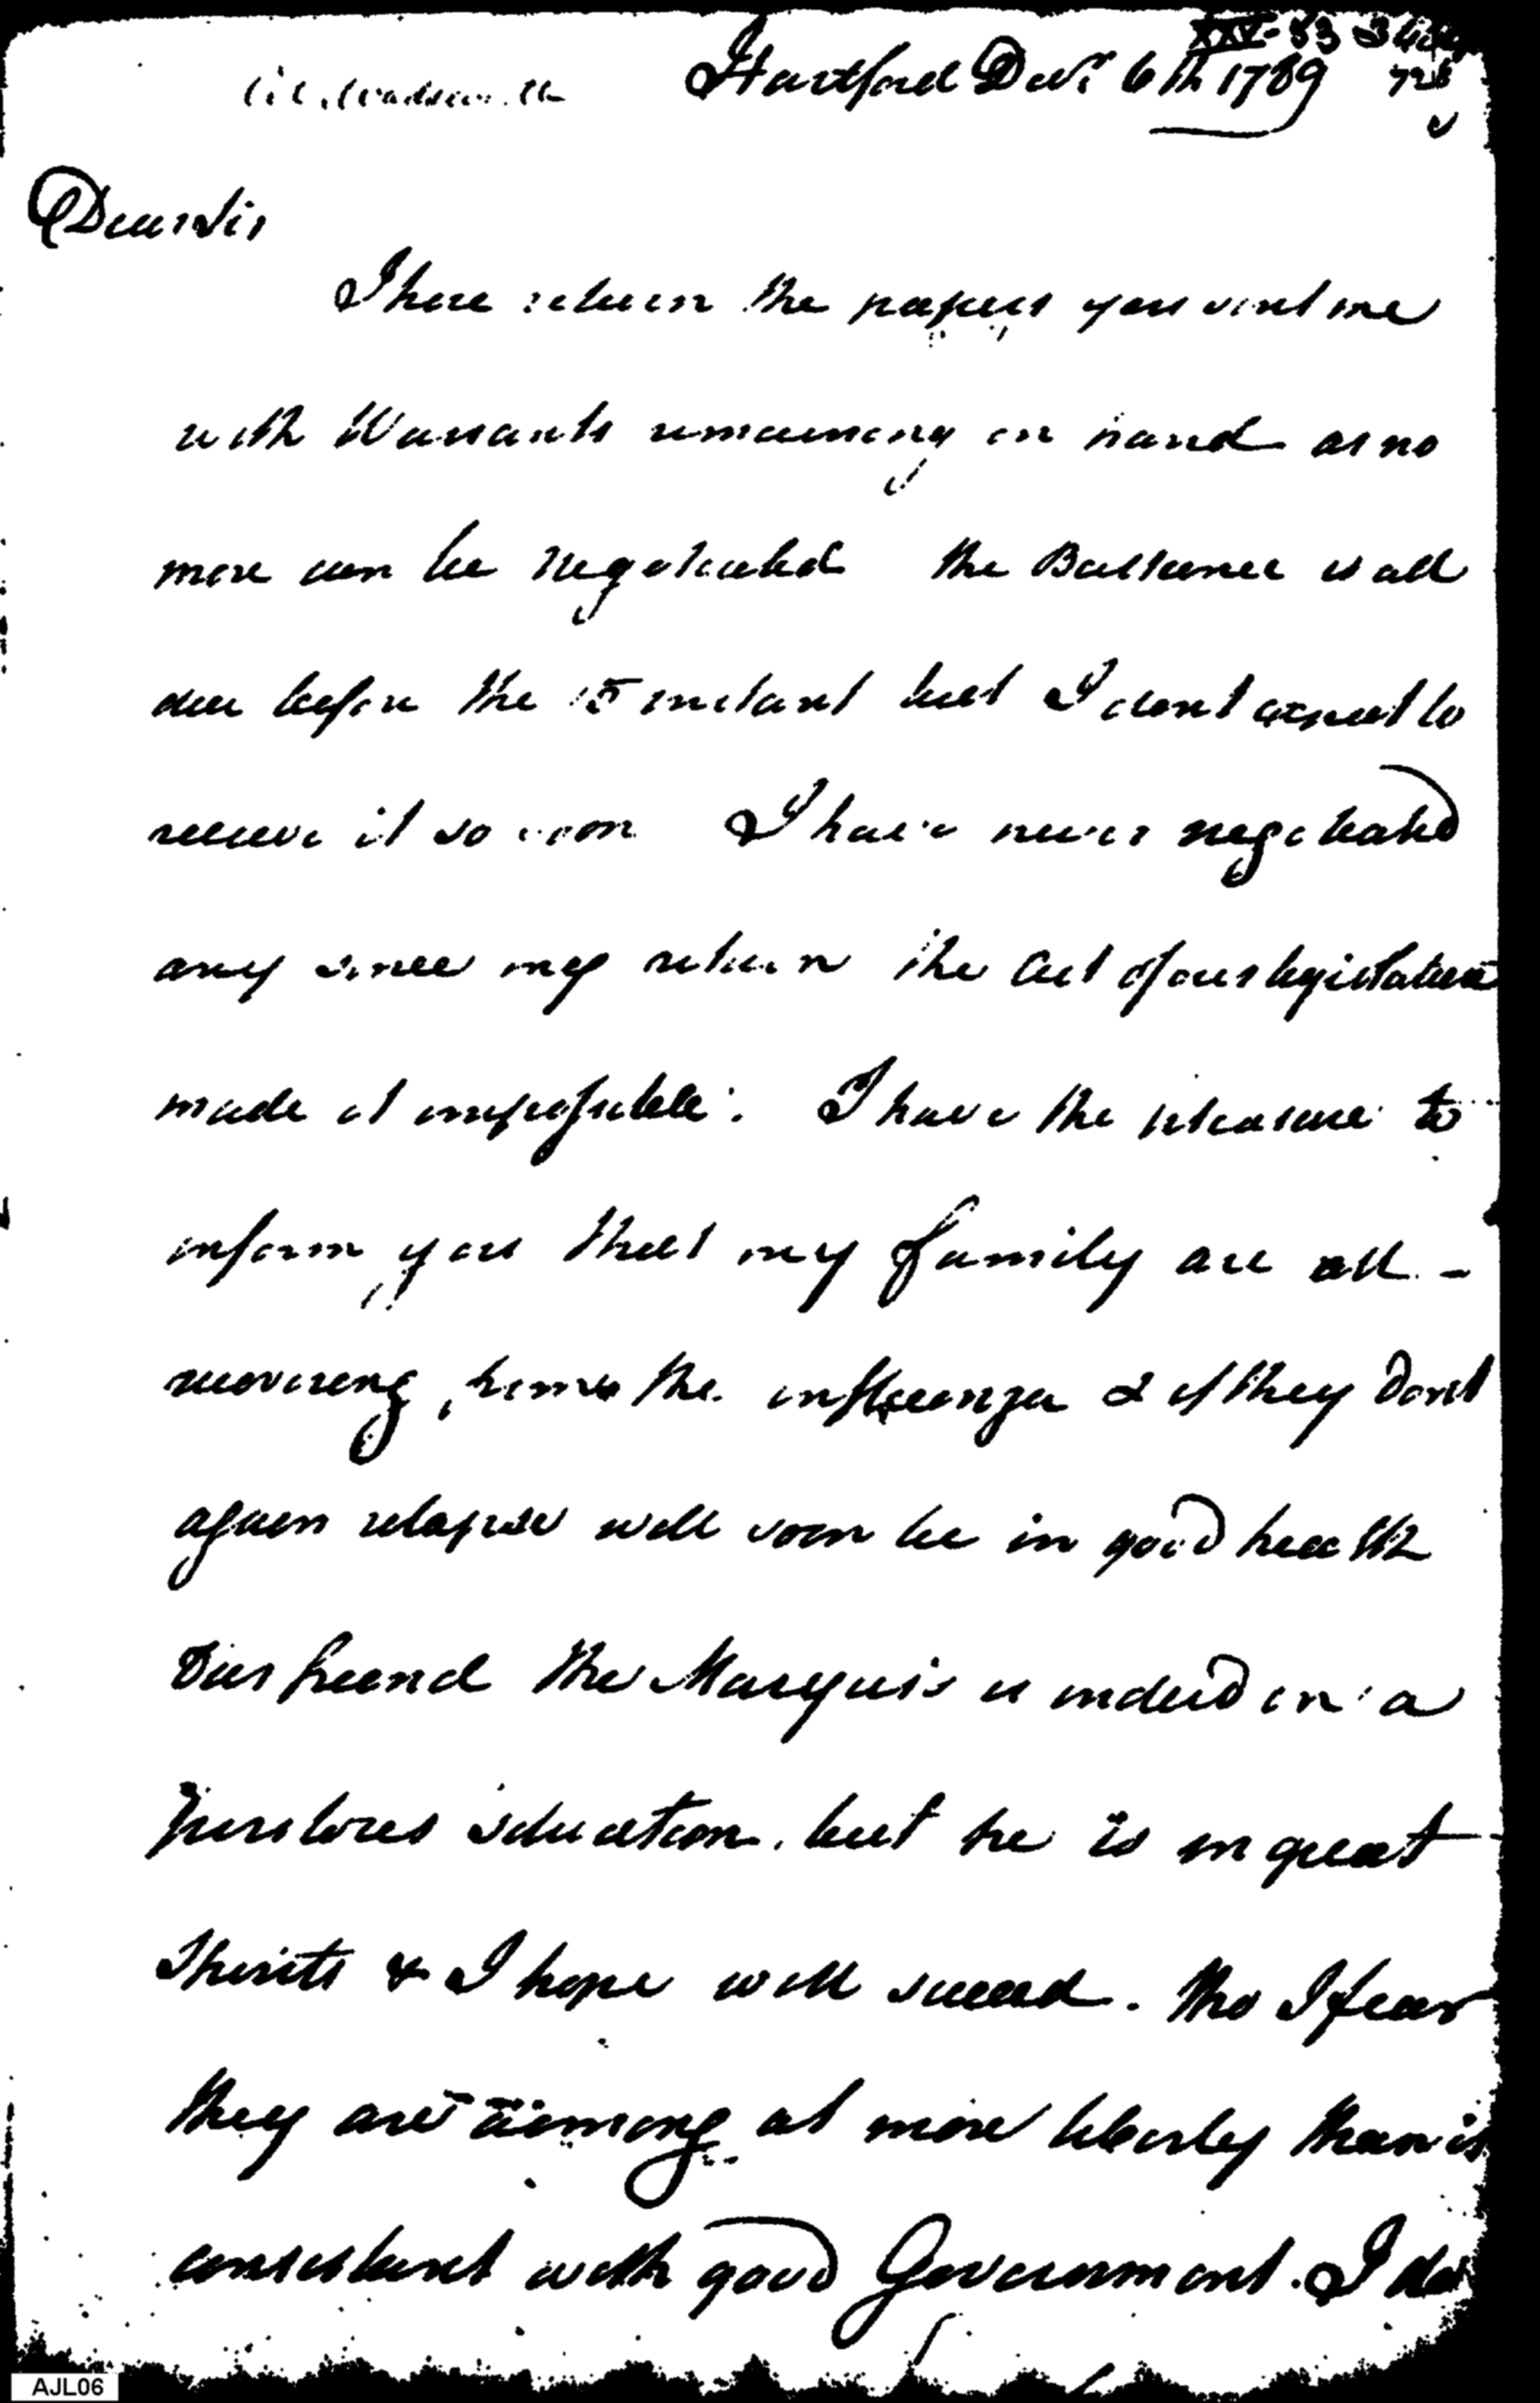 Hartford Decr 6th 1789
Dear Sir
I here return the papers you sent me
with Warrants remaining in hand as no
more can be negotiated the Ballance is all
due before the 15 instant but I dont expect to
receive it so soon I have never negotiated
any since my return the Act of our legislature
made it impossible. I have the pleasure to
inform you that my family are all -
recovering from the influenza & if they Dont
again relapse will soon be in good health
Our friend the Marquis is indeed in a
perilous situation. but he is in great
Spirits & I hope will succeed. tho I fear
they are aiming at more liberty than is
consistent with good Government. I do
AJL06